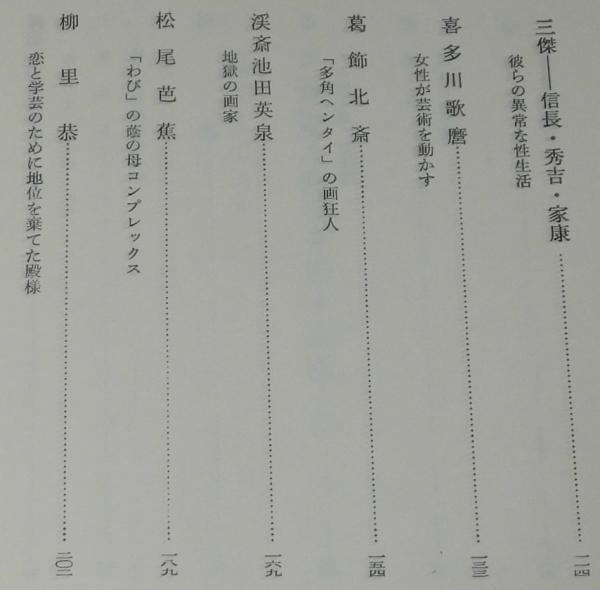 三傑――信長・秀吉・家康……一一四
彼らの異常な性生活
喜多川歌麿……一三三
女性が芸術を動かす
葛飾北斎……一五四
「多角ヘンタイ」の画狂人
渓斎池田英泉……一六九
地獄の画家
松尾芭蕉……一八九
「わび」の蔭の母コンプレックス
柳里恭……二〇二
恋と学芸のために地位を棄てた殿様